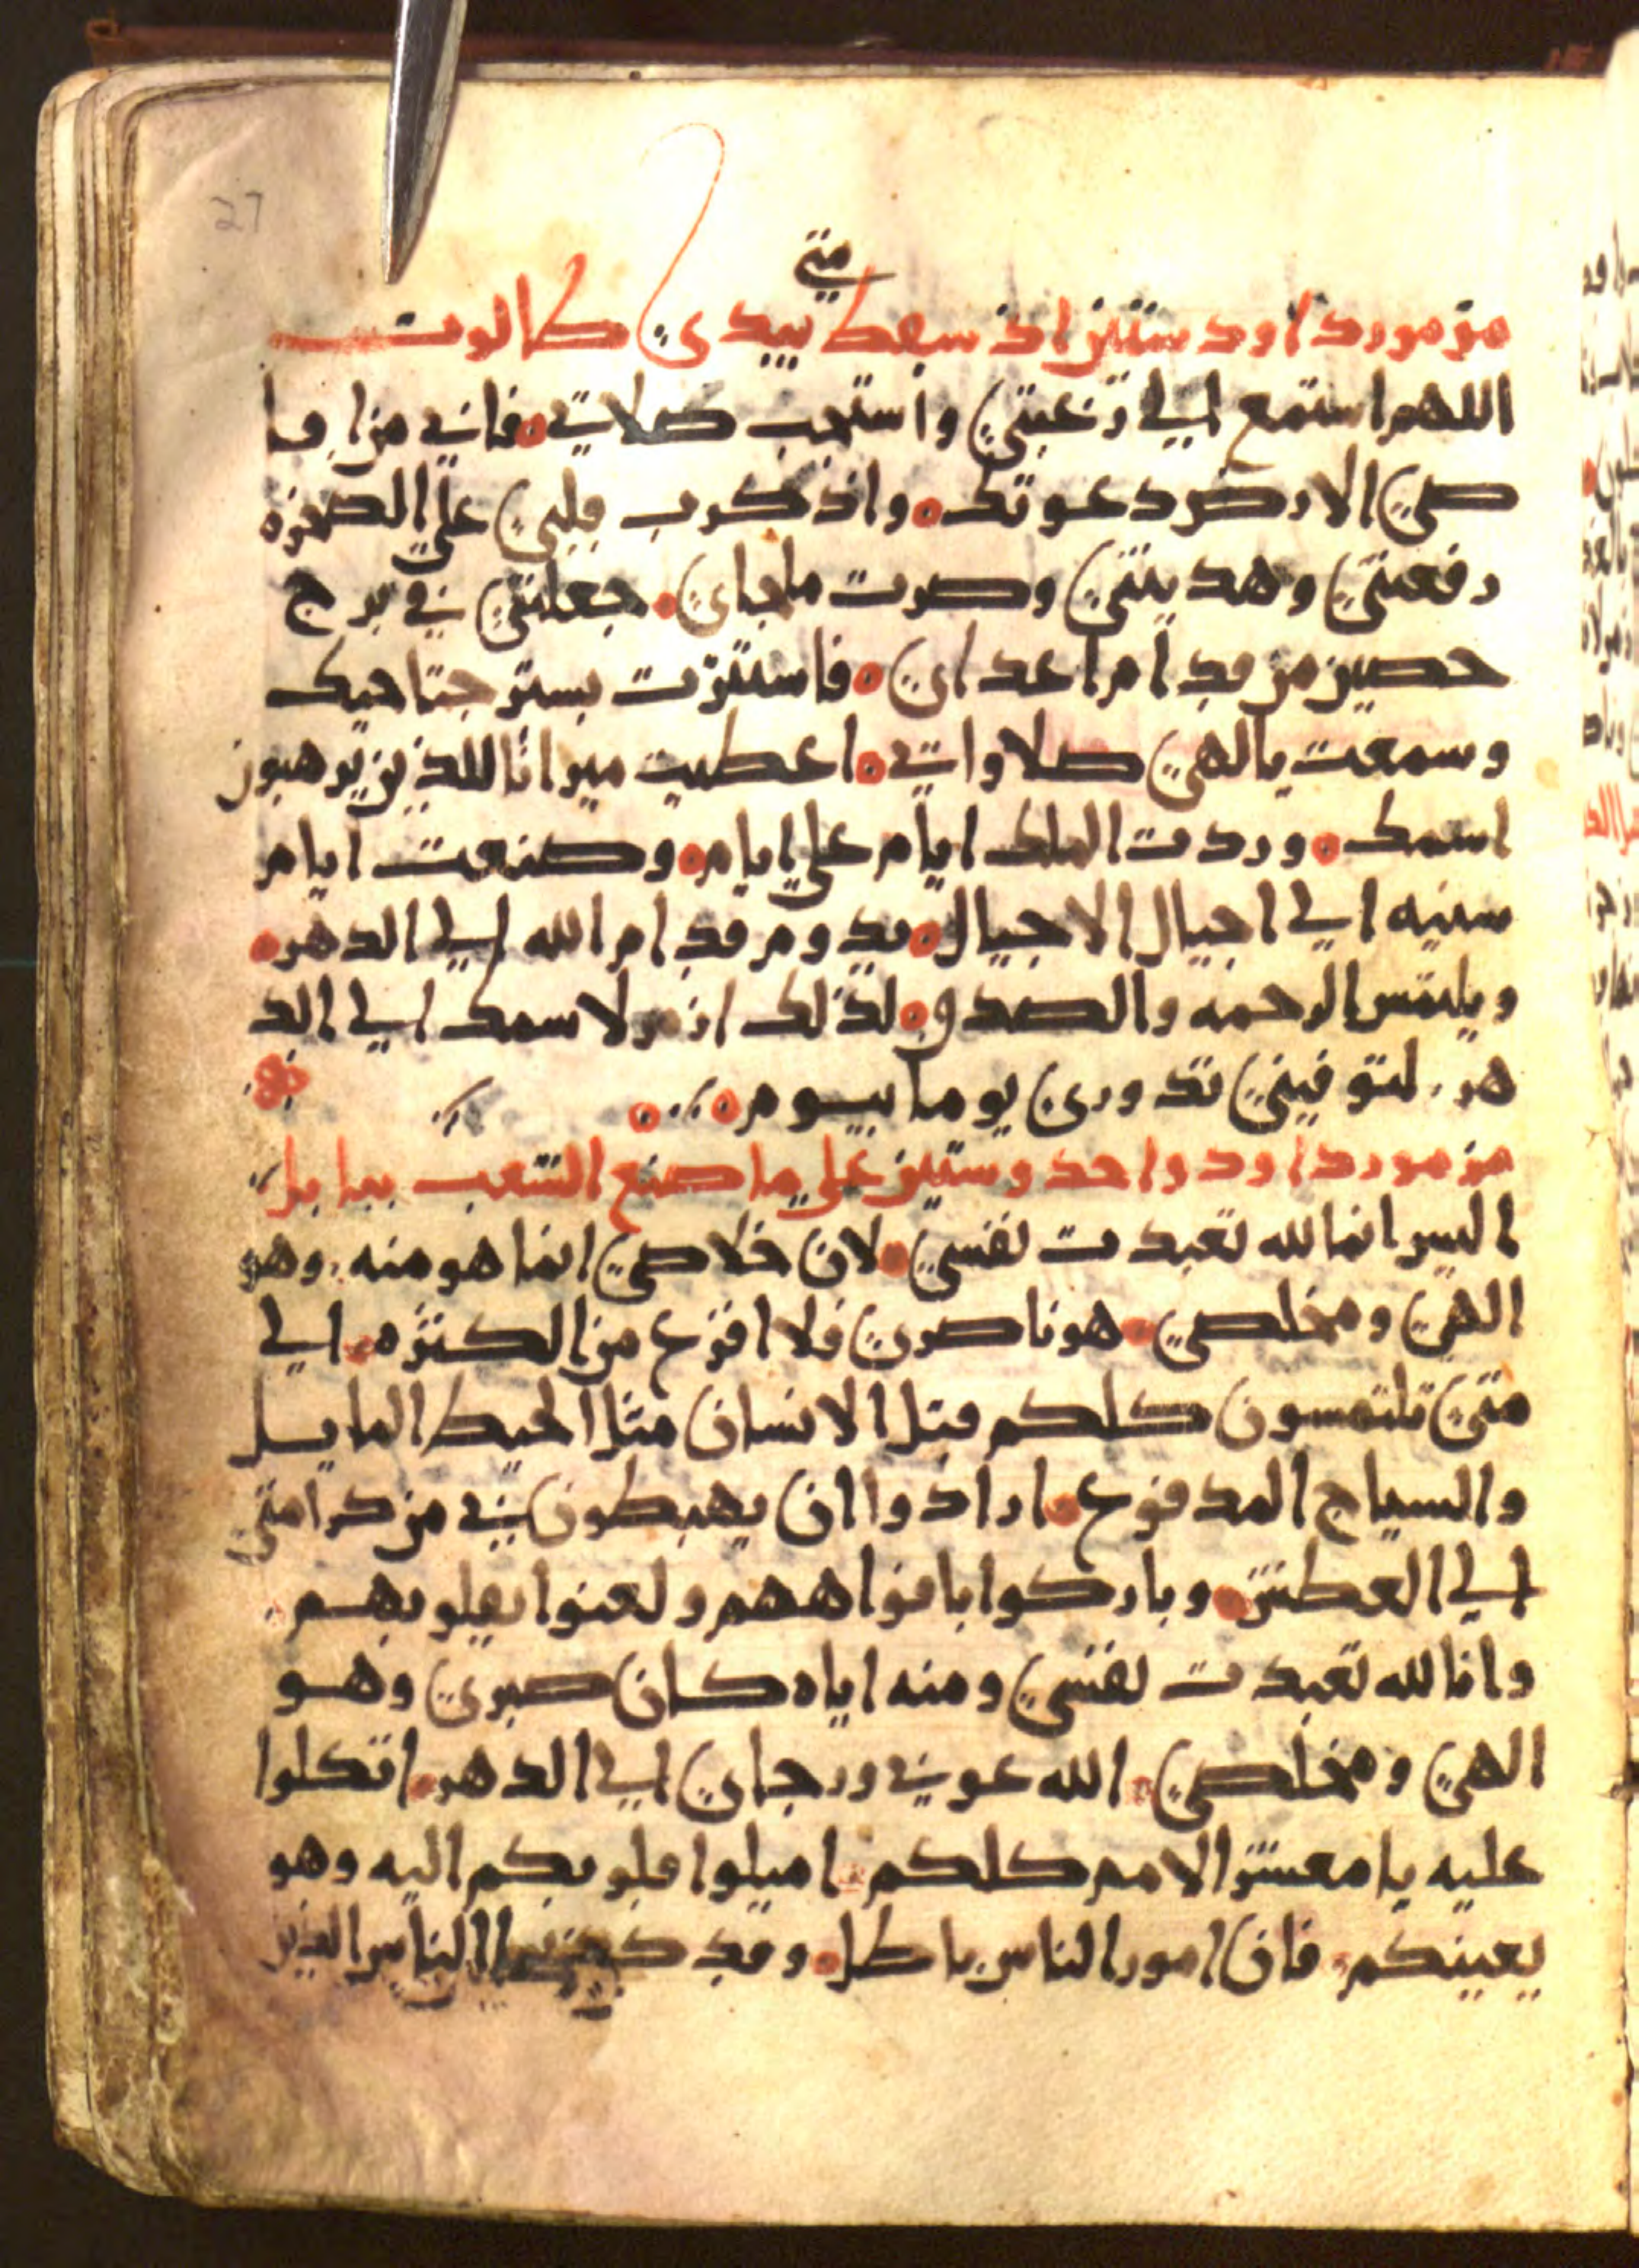 27
متي
مزمور داود ستين اذ سقط بيدي طالوت
اللهم استمع الي رغبتي واستجب صلاتي فاني من اقا
صي الارض دعوتك واذ كرب قلبي علي الصخره
رفعتني وهديتني وصرت ملجاي جعلتني في برج
حصين من قدام اعداي فاستترت بستر جناحيك
وسمعت يالهي صلاواتي اعطيت ميراثا للذين يرهبون
اسمك وردت الملك ايام علي ايام وصنعت ايام
سنيه الي اجيال الاجيال يدوم قدام الله الي الدهر
ويلتمس الرحمه والصدق لذلك ازمر لاسمك الي الد
هر لتوفيني ندوري يوما بيوم
مزمور داود واحد وستين علي ما صنع الشعب ببابل
اليس انما لله تعبدت نفسي لان خلاصي انما هو منه وهو
الهي ومخلصي هو ناصري فلا افزع من الكثره الي
متي تلتمسون كلكم قتل الانسان مثل الحيط المايل
والسياج المدفوع ارادوا ان يهبطون ني من كرامتي
الي العطش وباركوا بافواههم ولعنوا بقلوبهم
وانا لله تعبدت نفسي ومنه اياه كان صبري وهو
الهي ومخلصي الله عوني ورجاي الي الدهر اتكلوا
عليه يا معشر الامم كلكم اميلوا قلوبكم اليه وهو
يعينكم فان امور الناس باطل وقد الناس الذين